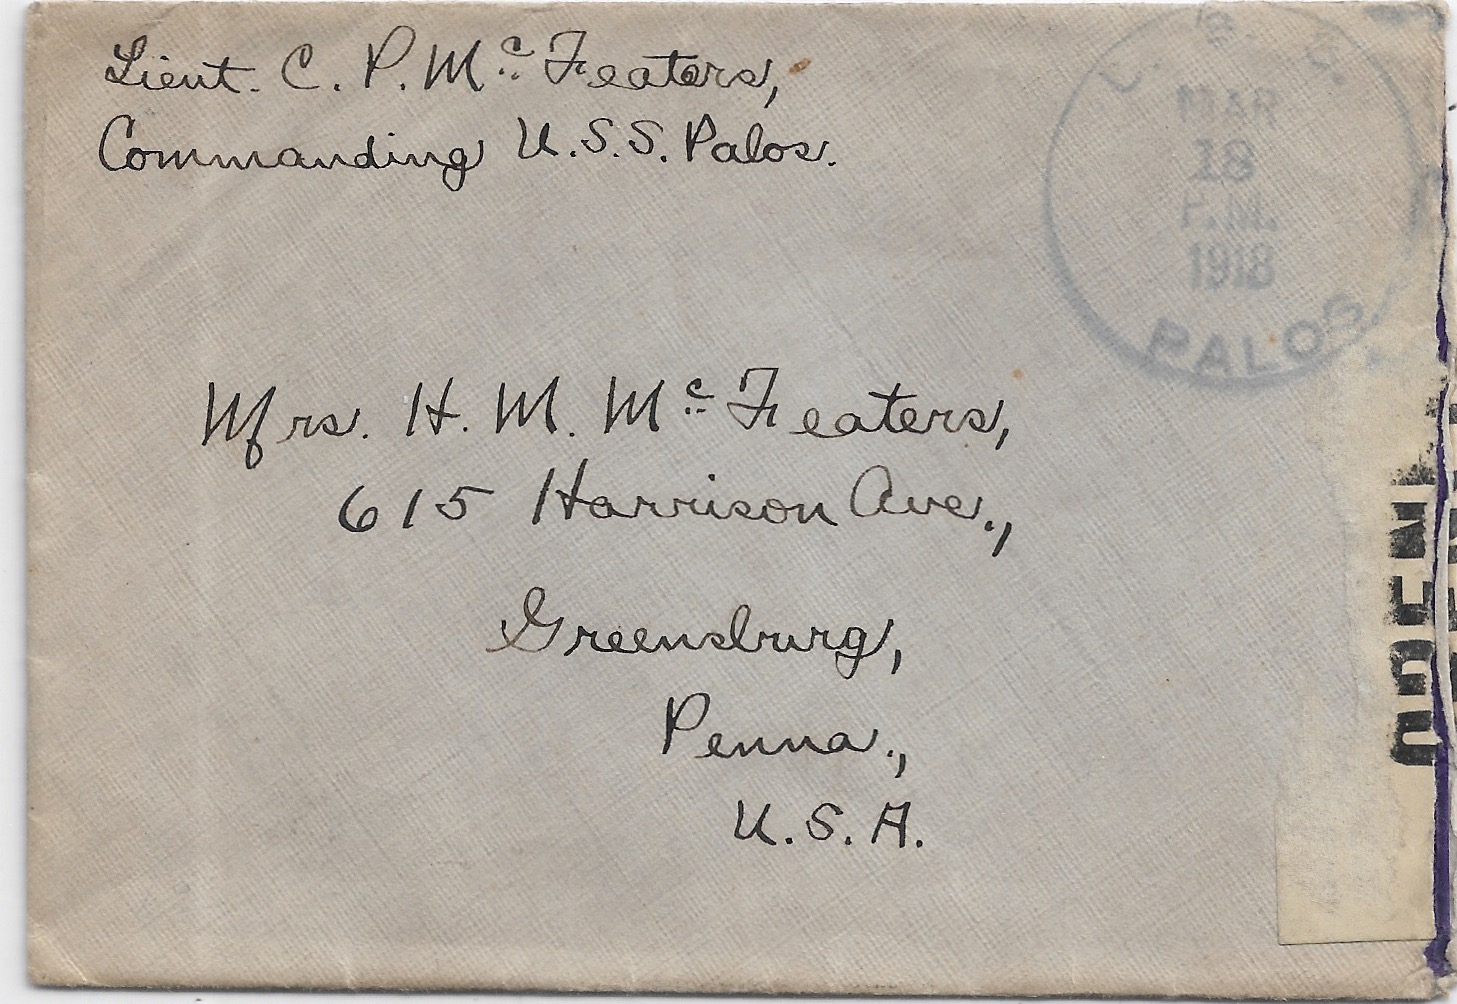 Lieut. C. P. Mc Featers,
Commanding U.S.S. Palos.
U. S. S.
MAR
18
P.M.
1918
PALOS
Mrs. H. M. Mc Featers,
615 Harrison Ave.,
Greensburg,
Penna.,
U.S.A.